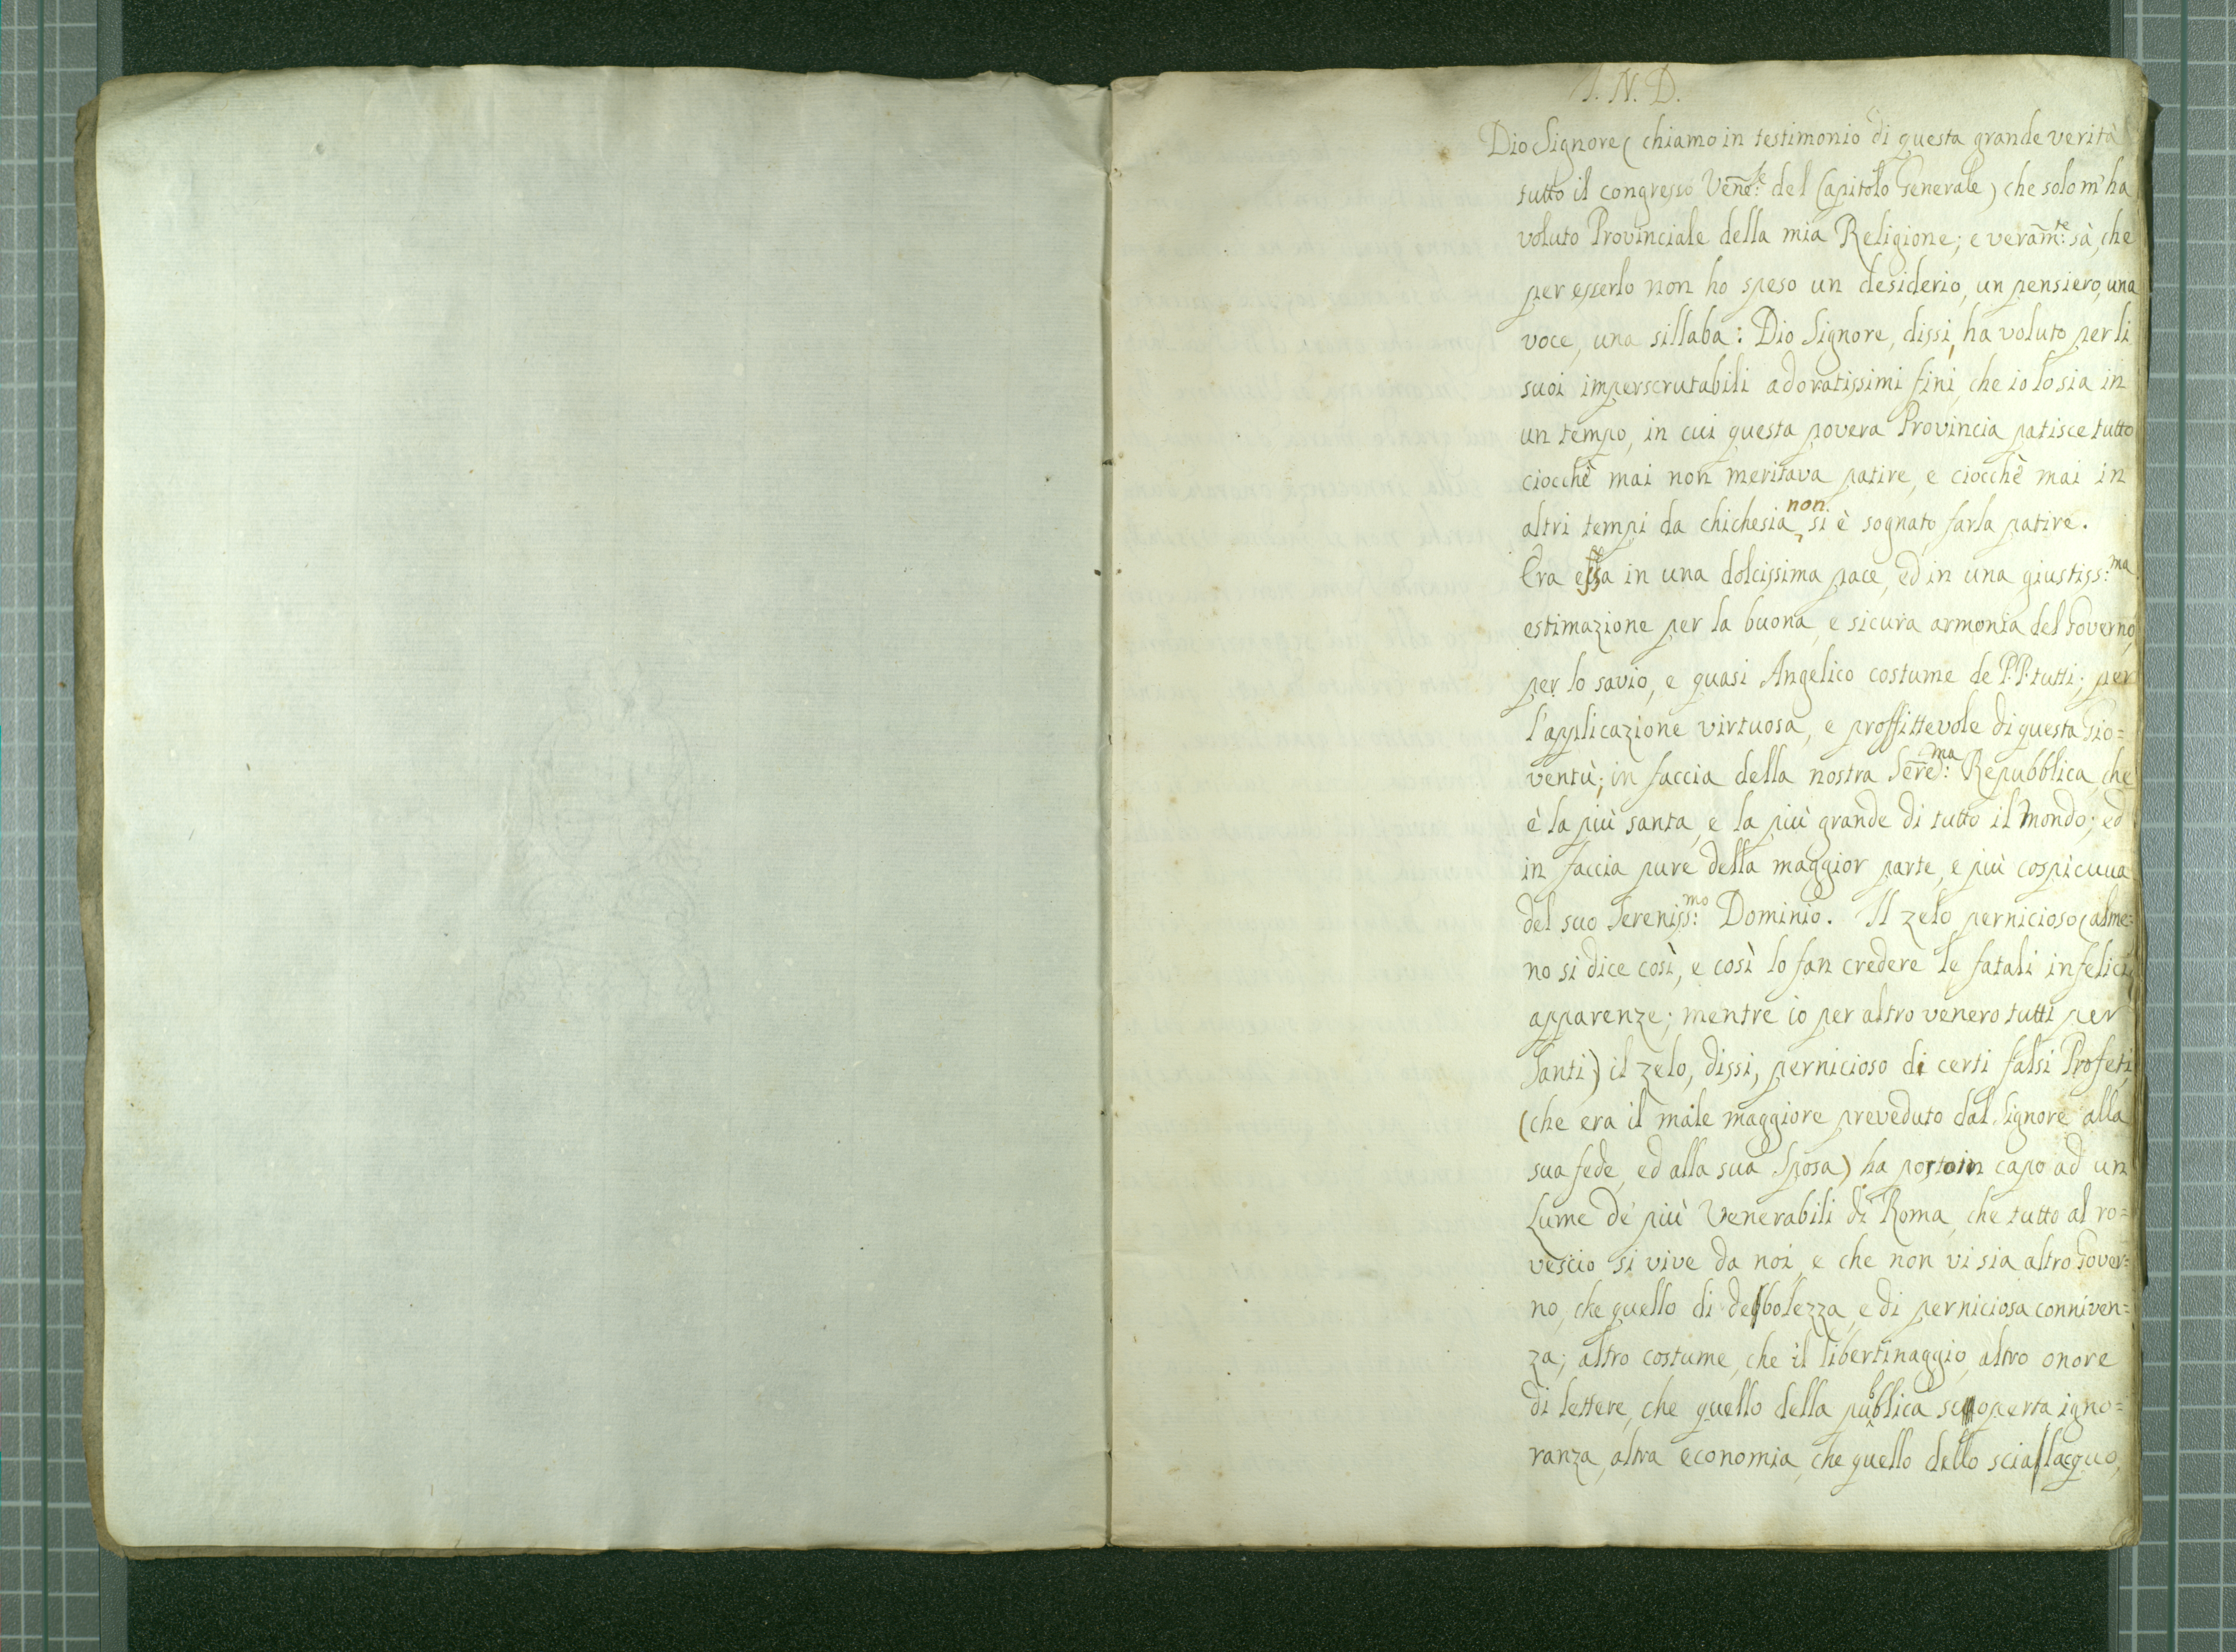 I. N. D.
Dio Signore ( chiamo in testimonio di questa grande verità
tutto il congresso Vene:le del Capitolo Generale ) che solo m'ha
voluto Provinciale della mia Religione; e veram:te sà, che
per esserlo non ho speso un desiderio, un pensiero, una
voce, una sillaba: Dio Signore, dissi, ha voluto per li
suoi imperscrutabili adoratissimi fini, che io lo sia in
un tempo, in cui questa povera Provincia patisce tutto
ciocchè mai non meritava patire, e ciocchè mai in
altri tempi da chichesia non si è sognato farla patire.
Era essa in una dolcissima pace, ed in una giustiss:ma
estimazione per la buona, e sicura armonia del Governo,
per lo savio, e quasi Angelico costume de P.P. tutti; per
l'applicazione virtuosa, e proffittevole di questa Gio=
ventù; in faccia della nostra Sered:ma Repubblica, che
è la più santa, e la più grande di tutto il Mondo; ed
in faccia pure della maggior parte, e più cospicuua
del suo Sereniss:mo Dominio. Il zelo pernicioso ( alme=
no si dice così, e così lo fan credere le fatali infelici
apparenze; mentre io per altro venero tutti per
Santi ) il zelo, dissi, pernicioso di certi falsi Profeti,
( che era il male maggiore preveduto dal Signore alla
sua fede, ed alla sua Sposa ) ha posto in capo ad un
Lume de' più Venerabili di Roma, che tutto al ro=
vescio si vive da noi, e che non vi sia altro Gover=
no, che quello di debolezza, e di perniciosa conniven=
za; altro costume, che il libertinaggio, altro onore
di lettere, che quello della pubblica scoperta igno=
ranza, altra economia, che quello dello scialacquo,